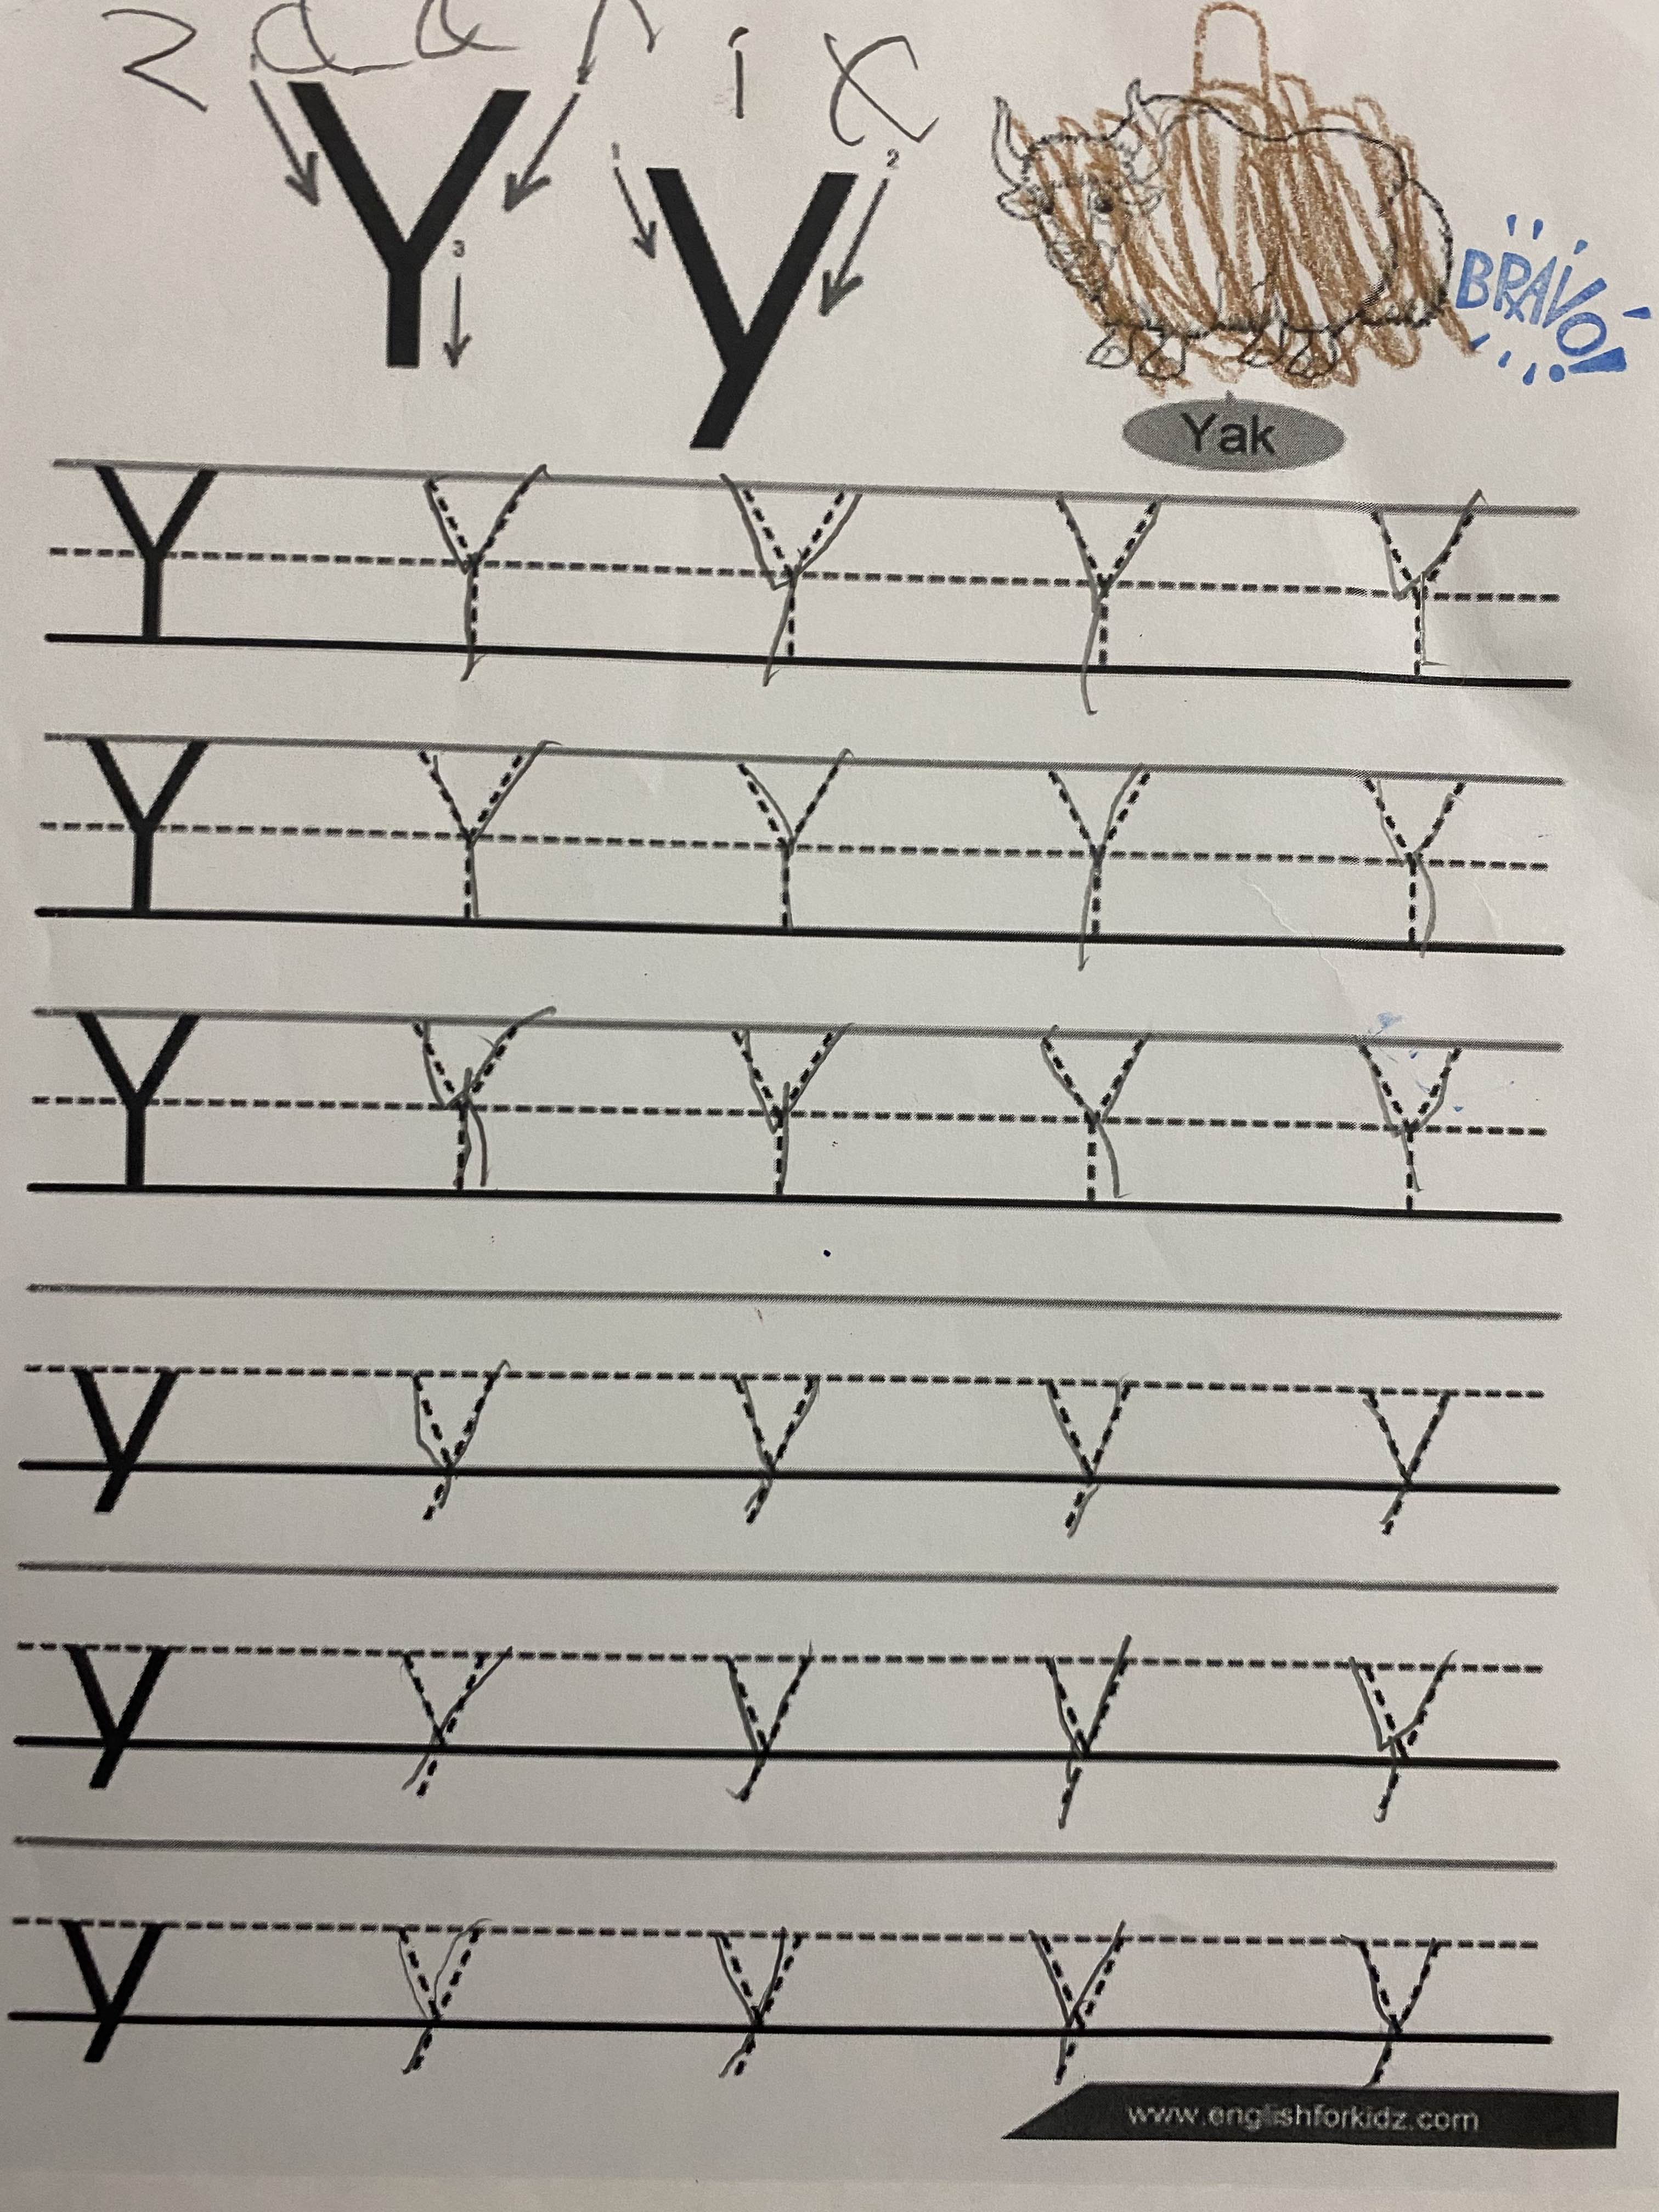 Y y
1 3 1 2
BRAVO!
Yak
Y Y Y Y Y
Y Y Y Y Y
Y Y Y Y Y
y y y y y
y y y y y
y y y y y
www.englishforkidz.com